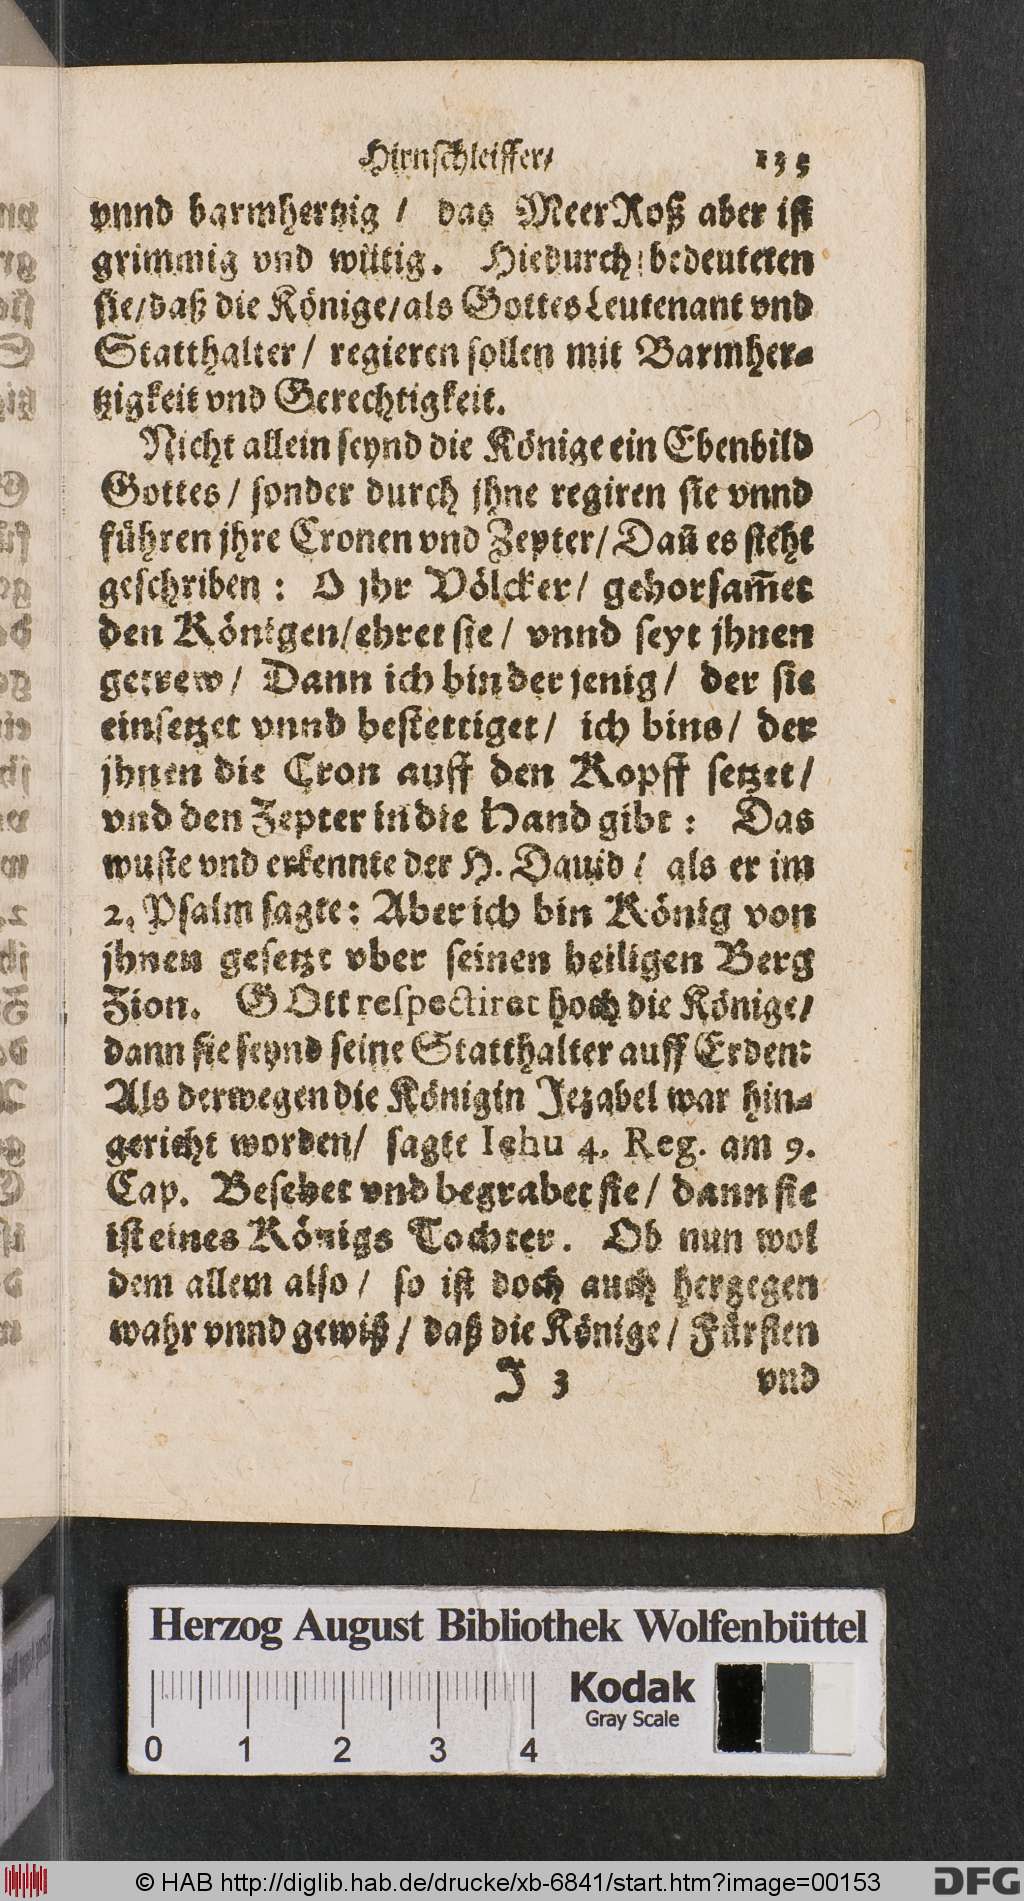 Hirnschleiffer/ 135
vnnd barmhertzig / das MeerRoß aber ist
grimmig vnd wütig. Hiedurch bedeuteten
sie/daß die Könige/als Gottes Leutenant vnd
Statthalter/ regieren sollen mit Barmher-
tzigkeit vnd Gerechtigkeit.
Nicht allein seynd die Könige ein Ebenbild
Gottes / sonder durch jhne regiren sie vnnd
führen jhre Cronen vnd Zepter/ Dañ es steht
geschriben : O jhr Völcker/ gehorsam̄et
den Königen/ehret sie/ vnnd seyt jhnen
getrew/ Dann ich bin der jenig/ der sie
einsetzet vnnd bestettiget/ ich bins/ der
jhnen die Cron auff den Kopff setzet/
vnd den Zepter in die Hand gibt : Das
wuste vnd erkennte der H. Dauid / als er im
2. Psalm sagte: Aber ich bin König von
jhnen gesetzt vber seinen heiligen Berg
Zion. GOtt respectiret hoch die Könige/
dann sie seynd seine Statthalter auff Erden:
Als derwegen die Königin Jezabel war hin-
gericht worden/ sagte Iehu 4. Reg. am 9.
Cap. Besehet vnd begrabet sie/ dann sie
ist eines Königs Tochter. Ob nun wol
dem allem also/ so ist doch auch hergegen
wahr vnnd gewiß/ daß die Könige/ Fürsten
J 3 vnd
Herzog August Bibliothek Wolfenbüttel
Kodak
Gray Scale
0 1 2 3 4
© HAB http://diglib.hab.de/drucke/xb-6841/start.htm?image=00153 DFG